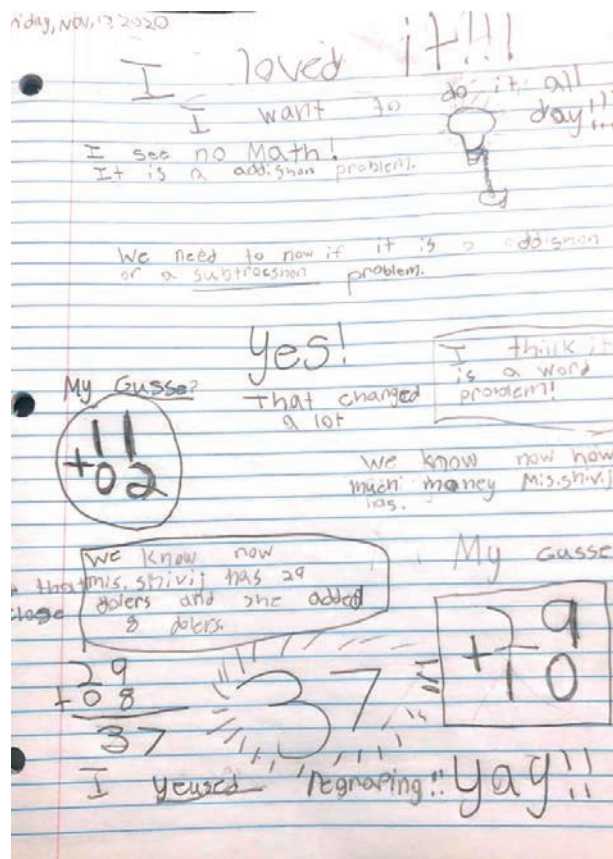 riday, Nov, 13, 2020
I loved it!!!
I want to do it all
day!!!
I see no Math!
It is a addishon problem.
We need to now if it is a addishon
or a subtrocshon problem.
Yes!
That changed
a lot
I think it
is a word
problem!
My Gusse?
11
+02
We know now how
much money Mis.shivij
has.
We know now
mis.shivij has 29
dolers and she added
8 dolers.
that
close
My Gusse
29
+10
29
+08
37
37
I yeused regraping!! yay!!